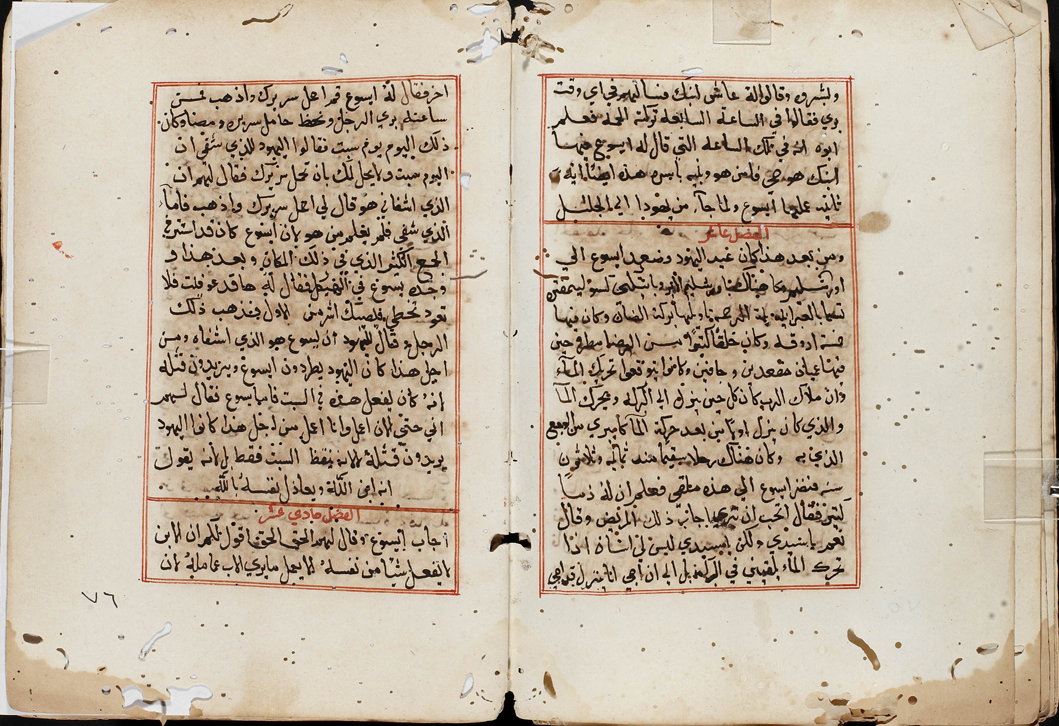 ويشروه وقالوا له عاش ابنك فسالهم في اي وقت
بري فقالوا في الساعه السابعه تركته الحمه فعلم
ابوه انه في تلك الساعه التي قال له ايسوع فيها
ابنك هو حي فامن هو وبيته باسره هذه ايضا ايه
ثانيه عملها ايسوع ولما جآء من يهودا الي الجليل
الفصل عاشر
ومن بعد هذا كان عيد اليهود وصعد ايسوع الي
اورشليم وكان هناك
تسما العبرانيه بركة الضان وكان فيها
خمسة اروقه وكان خلقا كثيرا من المرضا مطروحين
فيها عميان مقعدين و جافين وكانوا يتوقعوا تحريك المآء
وان ملاك الرب كان كل حين ينزل الي البركه ويحرك المآ
والذي كان ينزل اولا من بعد حركة المآ كان يبري من الوجع
الذي به وكان هناك رجلا سقيما منذ ثمانيه وثلاثون
سنه فنضر ايسوع الي هذه ملقي فعلم ان له زمنا
كثير فقال اتحب ان تبري اجابه ذلك المريض وقال
نعم ياسيدي ولكن ياسيدي ليس لي انسان اذا
تحرك المآء يلقيني في البركه بل الي ان اجي انا ينزل قدامي
اخر فقال له ايسوع قم احمل سريرك واذهب فمن
ساعته بري الرجل ونهض حامل سريره ومضا وكان
ذلك اليوم يوم سبت فقالوا اليهود للذي شفي ان
اليوم سبت ولا يحل لك بان تحمل سريرك فقال لهم ان
الذي اشفاني هو قال لي احمل سريرك واذهب فاما
الذي شفي فلم يعلم من هو لان ايسوع كان قد استتر في
الجمع الكثير الذي في ذلك المكان وبعد هذا و
وجده يسوع في الهيكل فقال له ها قد عوفيت فلا
تعود تخطي فيصيبك اشر من الاول فذهب ذلك
الرجل و قال لليهود ان ايسوع هو الذي اشفاه ومن
اجل هذا كان اليهود يطردون ايسوع ويريدون قتله
انه كان يفعل هذه في السبت فاما يسوع فقال لهم
ابي حتي الان اعمل وانا اعمل من اجل هذا كانوا اليهود
يريدون قتلة لا لانه ينقظ السبت فقط بل لانه يقول
انه ابن اللّه ويعادل نفسه باللّه
الفصل حادي عشر
اجاب ايسوع وقال لهم الحق الحق اقول لكم ان الابن
لا يفعل شيا من نفسه الا يعمل ما يري الاب عاملة لان
٧٦